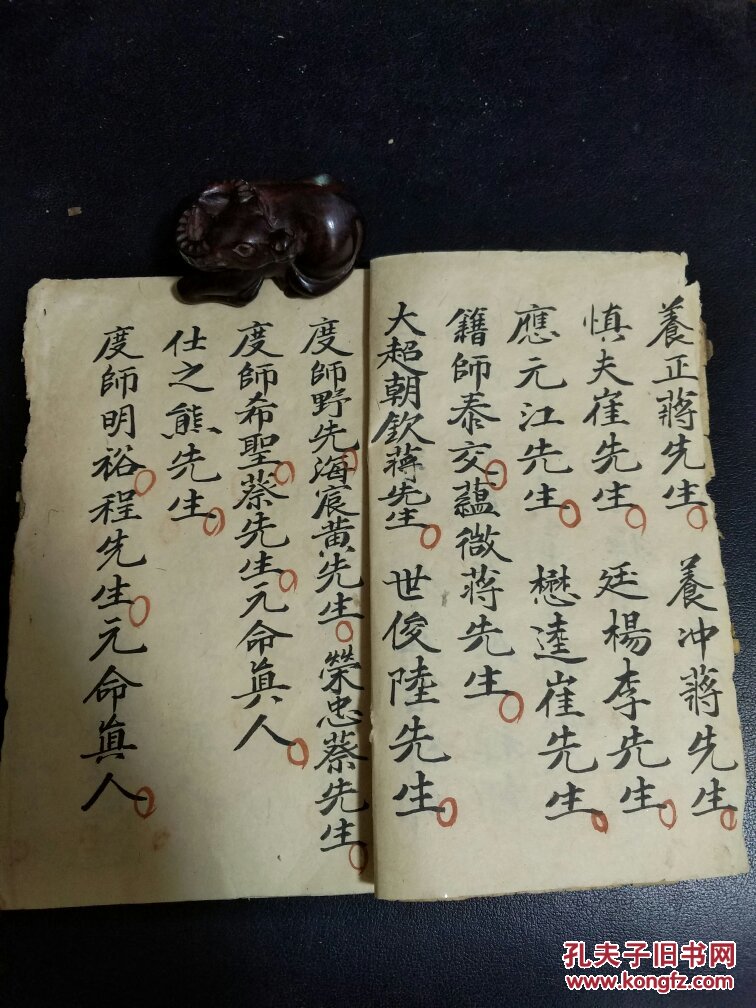 養正蔣先生 養冲蔣先生
慎夫崔先生 廷楊李先生
應元江先生 懋逵崔先生
籍師泰交蘊微蔣先生
大超朝欽蔣先生 世俊陸先生
度師野先海宸黄先生 榮忠蔡先生
度師希聖蔡先生元命真人
仕之熊先生
度師明裕程先生元命真人
孔夫子旧书网
www.kongfz.com